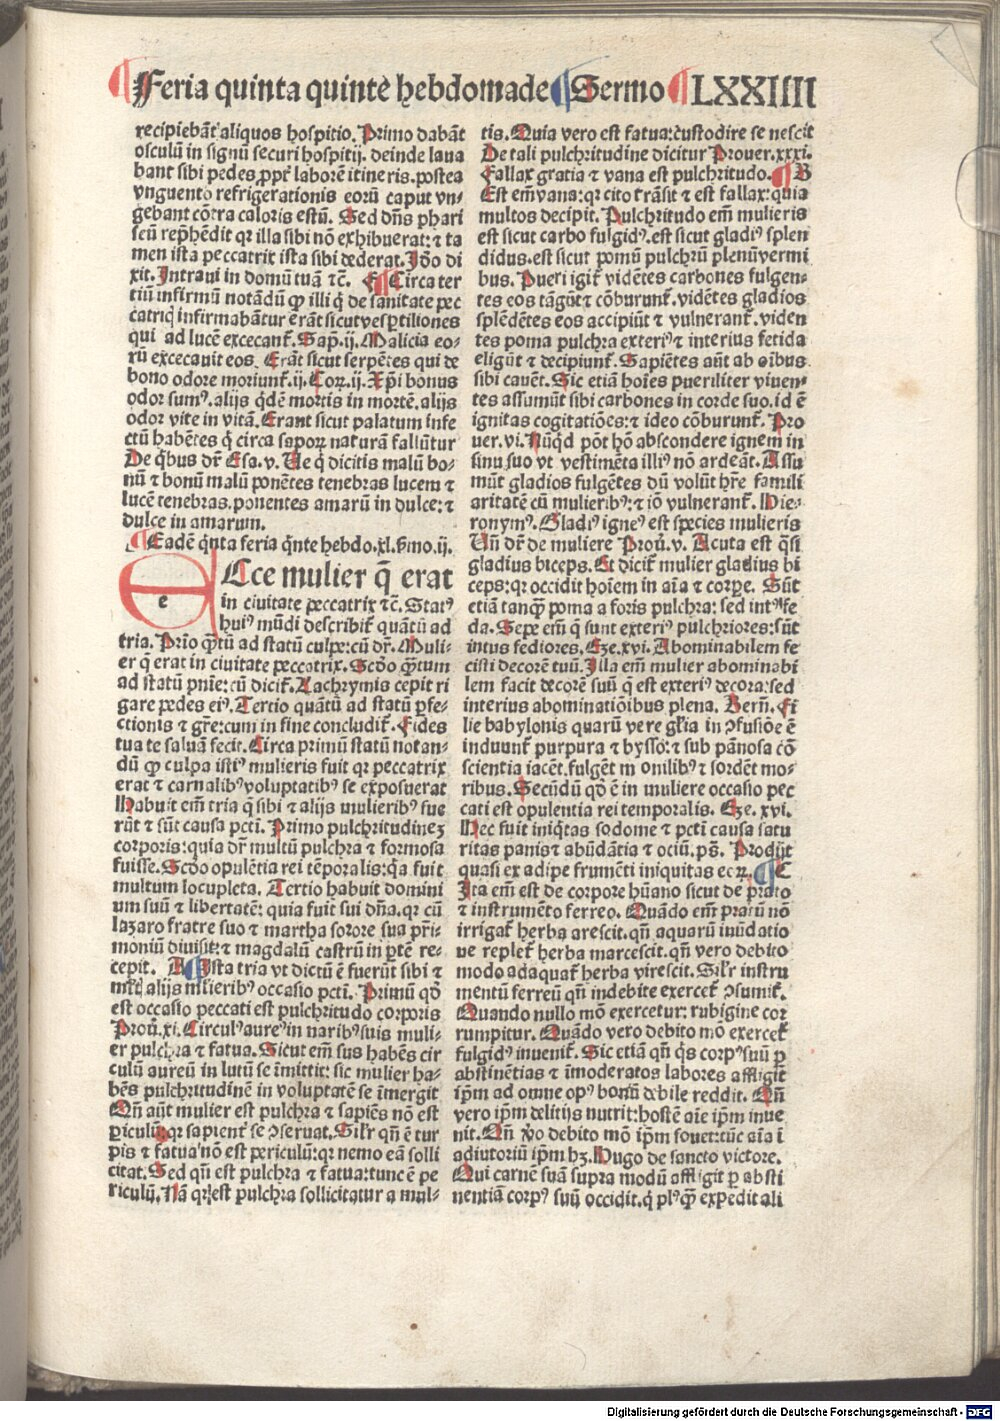 ¶Feria quinta quinte hebdomade ¶Sermo ¶LXXIIII
recipiebāt aliquos hospitio. Primo dabāt
osculū in signū securi hospitij. deinde laua
bant sibi pedes ꝓpt̄ laborē itineris. postea
vnguento refrigerationis eorū caput vn-
gebant cōtra caloris estū. Sed dn̄s phari
seū rep̄hēdit qꝛ illa sibi nō exhibuerat: ⁊ ta
men ista peccatrix ista sibi dederat. Iđo di
xit. Intraui in domū tuā ⁊c̄. F ¶Circa ter
tiū infirmū notādū ꝙ illi q̇ de sanitate pec
catricꝭ infirmabātur erāt sicut vesꝑtiliones
qui ad lucē excecant᷑. Sap̄. ij. Malicia eo-
rū excecauit eos. Erāt sicut serpētes qui de
bono odore moriunt᷑. ij. Coꝝ. ij. Xp̄i bonus
odor sumꝰ. alijs q̇dē mortis in mortē. alijs
odor vite in vitā. Erant sicut palatum infe
ctū habētes q̇ circa saporꝝ naturā falluntur
De q̇bus dr̄ Esa. v. Ue q̇ dicitis malū bo-
nū ⁊ bonū malū ponētes tenebras lucem ⁊
lucē tenebras. ponentes amarū in dulce: ⁊
dulce in amarum.
¶Eadē q̇nta feria q̇nte hebdo. xl. ẜmo. ij.
ECce mulier q̄ erat
in ciuitate peccatrix ⁊c̄. Statꝰ
huiꝰ mūdi describit᷑ quātū ad
tria. Prīo qͣ̄tū ad statū culpe: cū dr̄. Muli-
er q̄ erat in ciuitate peccatrix. Scđo qͣ̄tum
ad statū pn̄ie: cū dicit᷑. Lachrymis cepit ri
gare pedes eiꝰ. Tertio quātū ad statū ꝑfe-
ctionis ⁊ gr̄e: cum in fine concludit᷑. Fides
tua te saluā fecit. Circa primū statū notan-
dū ꝙ culpa istiꝰ mulieris fuit qꝛ peccatrix
erat ⁊ carnalibꝰ voluptatibꝰ se exposuerat
Habuit em̄ tria q̄ sibi ⁊ alijs mulieribꝰ fue
rūt ⁊ sūt causa pcti. Primo pulchritudinez
corporis: quia dr̄ multū pulchra ⁊ formosa
fuisse. Scđo opulētia rei tēporalis: qꝛ fuit
multum locupleta. Tertio habuit domini
um suū ⁊ libertatē: quia fuit sui dn̄a. qꝛ cū
lazaro fratre suo ⁊ martha sorore sua pr̄i-
moniū diuisit: ⁊ magdalū castrū in ꝑtē re-
cepit. A ¶Ista tria vt dictū ē fuerūt sibi ⁊
alijs mlieribꝰ occasio pcti. Primū qđ
est occasio peccati est pulchritudo corporis
Prou̇. xi. Circulꝰ aureꝰ in naribꝰ suis muli-
er pulchra ⁊ fatua. Sicut em̄ sus habēs cir
culū aureū in lutū se īmittit: sic mulier ha-
bēs pulchritudinē in voluptatē se īmergit
Qn̄ aūt mulier est pulchra ⁊ sapiēs nō est
ꝑiculū: qꝛ sapient᷑ se ↄseruat. Silr̄ qn̄ ē tur
pis ⁊ fatua nō est periculū: qꝛ nemo eā solli
citat. Sed qn̄ est pulchra ⁊ fatua: tunc ē pe
riculū. Nā qꝛ est pulchra sollicitatur a mul-
tis. Quia vero est fatua: custodire se nescit
De tali pulchritudine dicitur Prouer. xxxi.
Fallax gratia ⁊ vana est pulchritudo. ¶B
Est em̄ vana: qꝛ cito trāsit ⁊ est fallax: quia
multos decipit. Pulchritudo em̄ mulieris
est sicut carbo fulgidꝰ. est sicut gladiꝰ splen
didus. est sicut pomū pulchrū plenū vermi
bus. Pueri igit᷑ vidētes carbones fulgen-
tes eos tāgūt ⁊ cōburunt᷑. vidētes gladios
splēdētes eos accipiūt ⁊ vulnerant᷑. viden
tes poma pulchra exteriꝰ ⁊ interius fetida
eligūt ⁊ decipiunt᷑. Sapiētes aūt ab oībus
sibi cauēt. Sic etiā hoīes pueriliter viuen-
tes assumūt sibi carbones in corde suo. id ē
ignitas cogitatiōes: ⁊ ideo cōburunt᷑. Pro
uer. vi. Nūq̇d pōt hō abscondere ignem in
sinu suo vt vestimēta illiꝰ nō ardeāt. Assu
mūt gladios fulgētes dū volūt hr̄e famili
aritatē cū mulieribꝰ: ⁊ iō vulnerant᷑. Hie-
ronymꝰ. Gladiꝰ igneꝰ est species mulieris
Un̄ dr̄ de muliere Prou̇. v. Acuta est q̇si
gladius biceps. Et dicit᷑ mulier gladius bi
ceps: qꝛ occidit hoīem in aīa ⁊ corꝑe. Sūt
etiā tanꝙ poma a foris pulchra: sed intꝰ fe
da. Sepe em̄ q̄ sunt exteriꝰ pulchriores: sūt
intus fediores. Eze. xvi. Abominabilem fe
cisti decorē tuū. Illa em̄ mulier abominabi
lem facit decorē suū q̄ est exteriꝰ decora: sed
interius abominatiōibus plena. Bern̄. Fi
lie babylonis quarū vere gl̄ia in ↄfusiōe ē
induunt᷑ purpura ⁊ bysso: ⁊ sub pānosa cō
scientia iacēt. fulgēt monilibꝰ ⁊ sordēt mo-
ribus. Secūdū qđ ē in muliere occasio pec
cati est opulentia rei temporalis. Eze. xvi.
Hec fuit iniq̇tas sodome ⁊ pcti causa satu
ritas panis ⁊ abūdātia ⁊ ociū. ps̄. Prodijt
quasi ex adipe frumēti iniquitas eoꝝ. ¶C
Ita em̄ est de corpore hūano sicut de prato
⁊ instrumēto ferreo. Quādo em̄ pratū nō
irrigat᷑ herba arescit. qn̄ aquarū inūdatio
ne replet᷑ herba marcescit. qn̄ vero debito
modo adaquat᷑ herba virescit. Silr̄ instru
mentū ferreū qn̄ indebite exercet᷑ ↄsumit᷑.
Quando nullo mō exercetur: rubigine cor
rumpitur. Quādo vero debito mō exercet᷑
fulgidꝰ inuenit᷑. Sic etiā qn̄ q̇s corpꝰ suū ꝑ
abstinētias ⁊ īmoderatos labores affligit
ip̄m ad omne opꝰ bonū debile reddit. Qn̄
vero ip̄m delitijs nutrit: hostē aīe ip̄m inue
nit. Qn̄ v̊o debito mō ip̄m fouet: tūc aīa ī
adiutoriū ip̄m hꝫ. Hugo de sancto victore.
Qui carnē suā supra modū affligit ꝑ absti
nentiā corpꝰ suū occidit. q̇ plꝰ qͣ̄ expedit ali
Digitalisierung gefördert durch die Deutsche Forschungsgemeinschaft - DFG